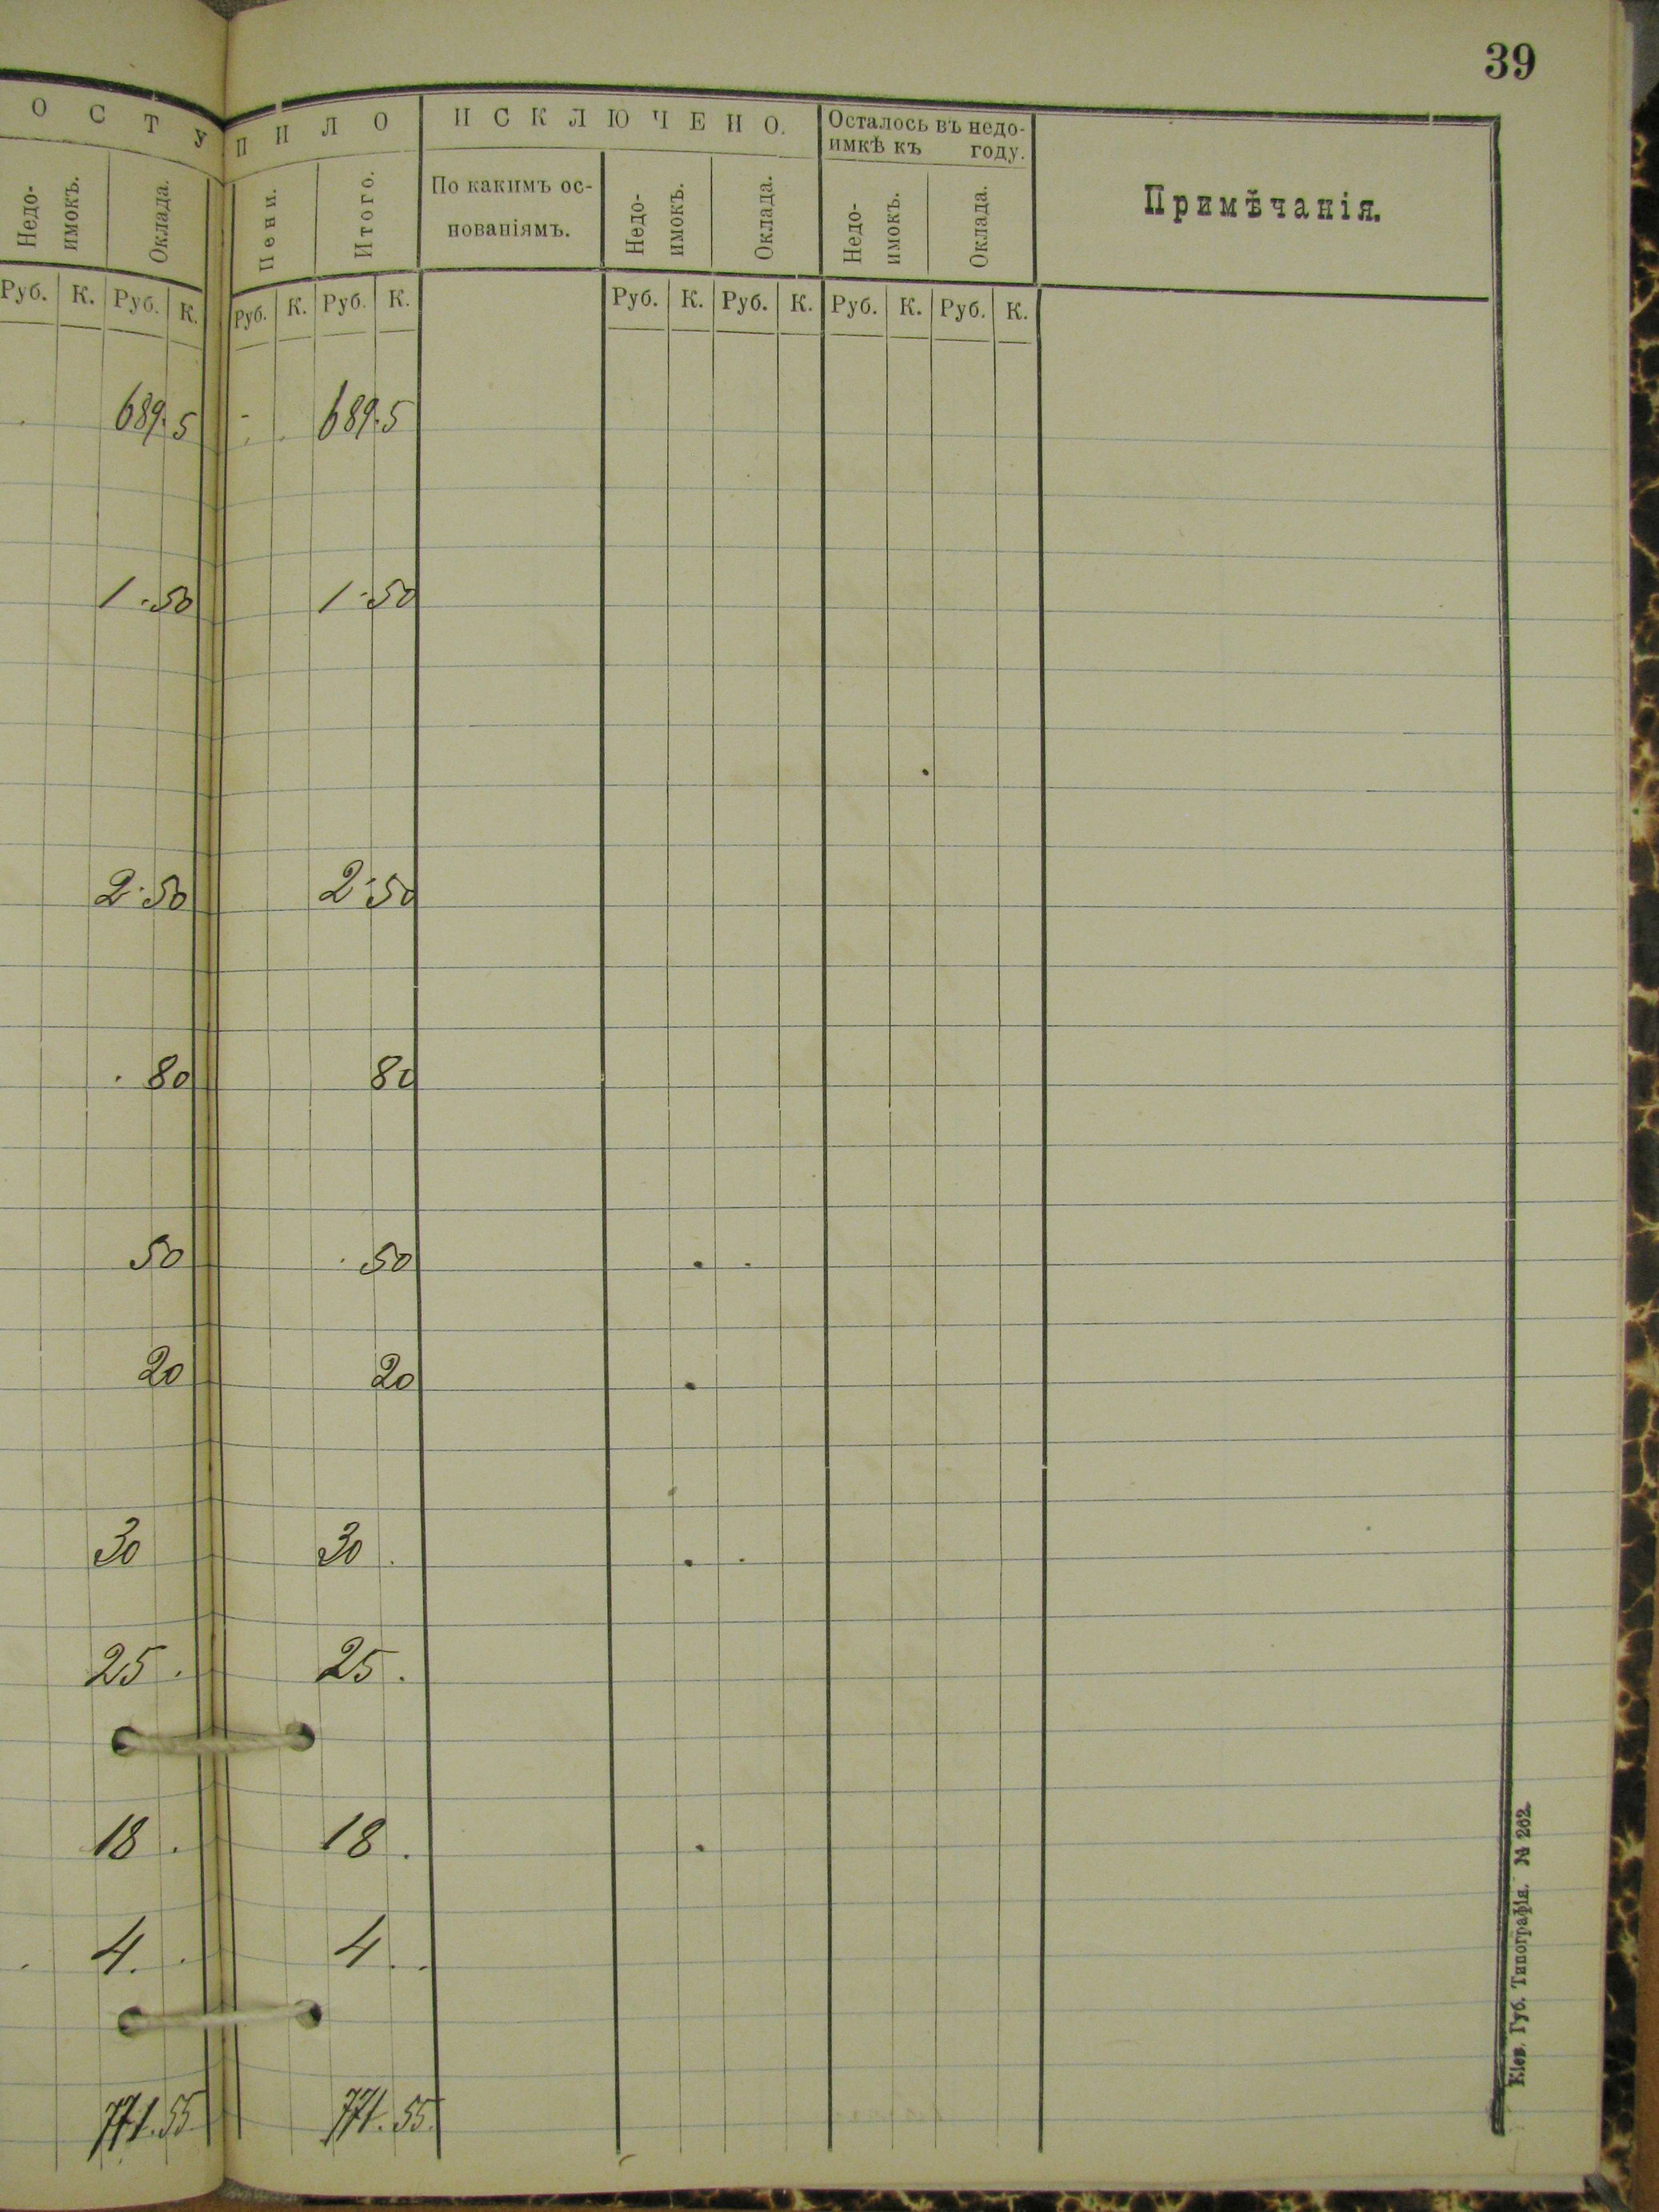 39
ОСТУПИЛО
ИСКЛЮЧЕНО.
Осталось въ недо-
имкѣ къ году.
Примѣчанія.
Недо-
имокъ.
Оклада.
Пени.
Итого.
По какимъ ос-
нованіямъ.
Недо-
имокъ.
Оклада.
Недо-
имокъ.
Оклада.
Руб. К. Руб. К. Руб. К. Руб. К. Руб. К. Руб. К. Руб. К. Руб. К.
689. 5 - 689. 5
1 - 50 1 - 50
2 - 50 2 - 50
80 80
50 50
20 20
30 30
25 25
18 18
4 4
771. 55 771. 55
Кіев. Губ. Типографія. № 262